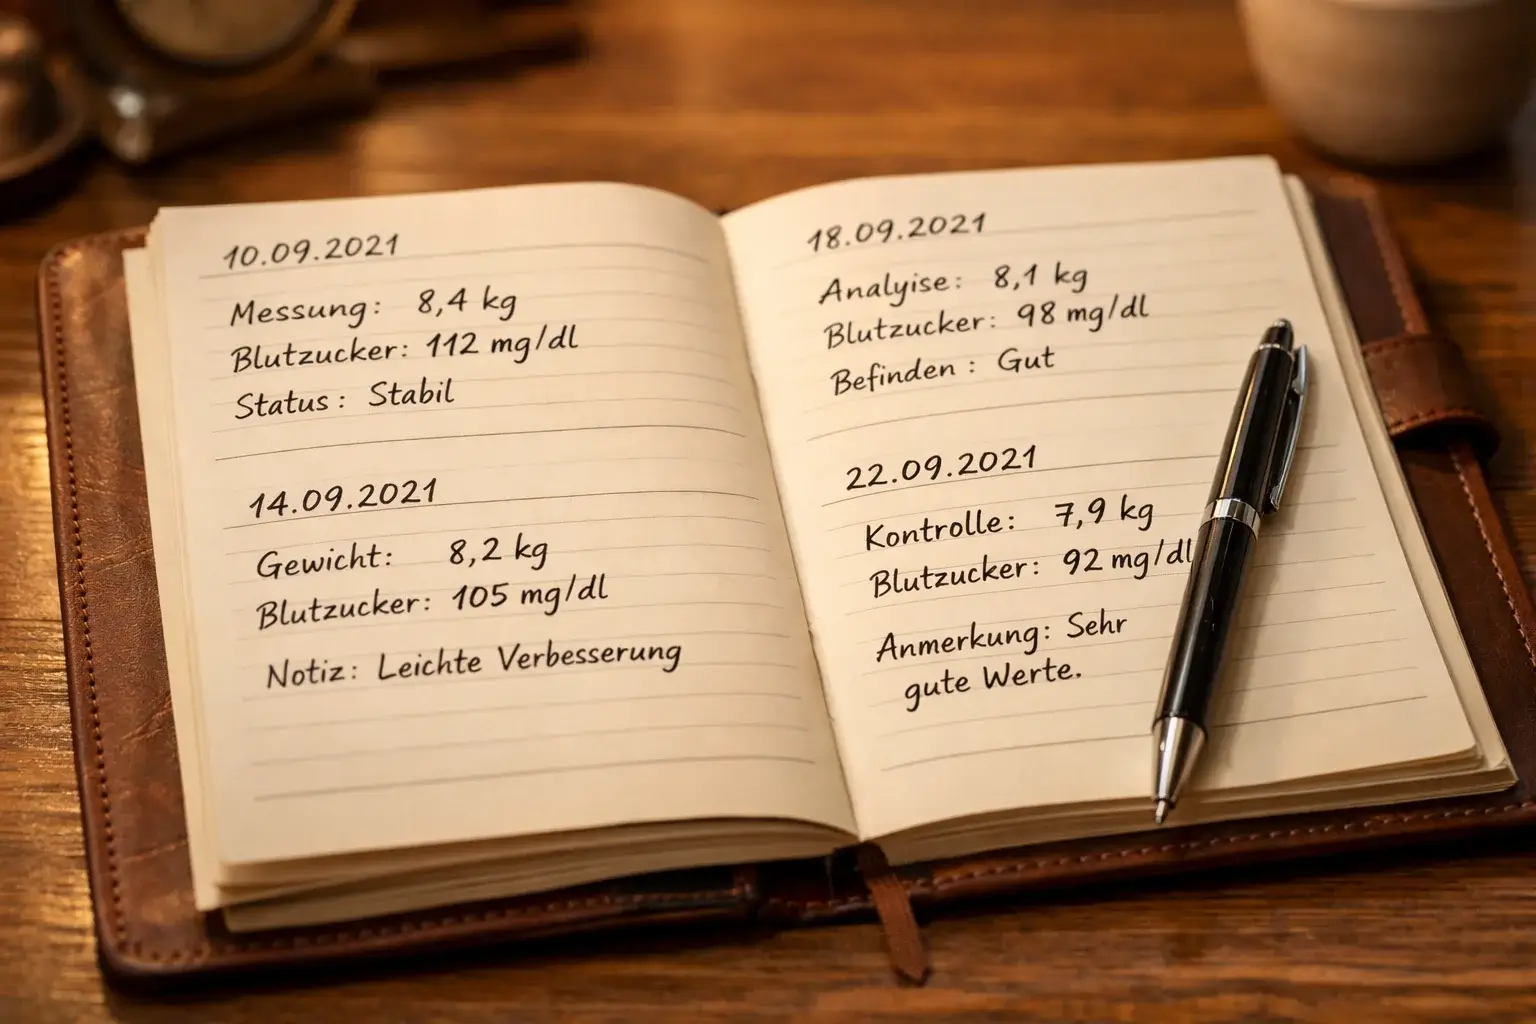 10.09.2021
Messung: 8,4 kg
Blutzucker: 112 mg/dl
Status: Stabil
14.09.2021
Gewicht: 8,2 kg
Blutzucker: 105 mg/dl
Notiz: Leichte Verbesserung
18.09.2021
Analyise: 8,1 kg
Blutzucker: 98 mg/dl
Befinden: Gut
22.09.2021
Kontrolle: 7,9 kg
Blutzucker: 92 mg/dl
Anmerkung: Sehr
gute Werte.